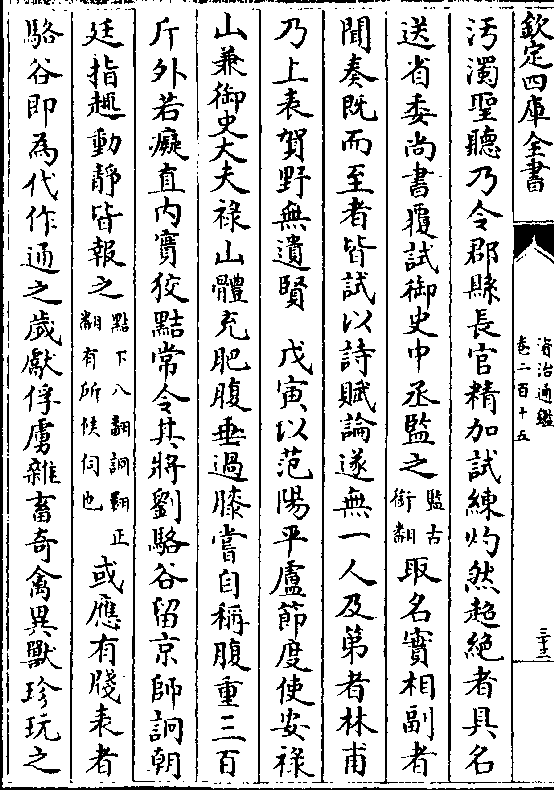 欽定四庫全書
資治通鑑
卷二百十五
三十三
汚濁聖聽乃令郡縣長官精加試練灼然超絶者具名
送省委尚書覆試御史中丞監之監古銜翻取名實相副者
聞奏既而至者皆試以詩賦論遂無一人及第者林甫
乃上表賀野無遺賢 戊寅以范陽平盧節度使安祿
山兼御史大夫祿山體充肥腹垂過膝嘗自稱腹重三百
斤外若癡直内實狡黠常令其將劉駱谷留京師詗朝
廷指趣動静皆報之黠下八翻詗翾正翻有所候伺也或應有牋表者
駱谷即為代作通之歲獻俘虜雜畜奇禽異獸珍玩之